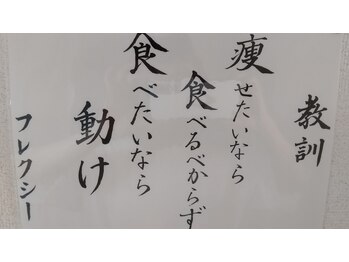 教訓
痩せたいなら
食べるべからず
食べたいなら
動け
フレクシー